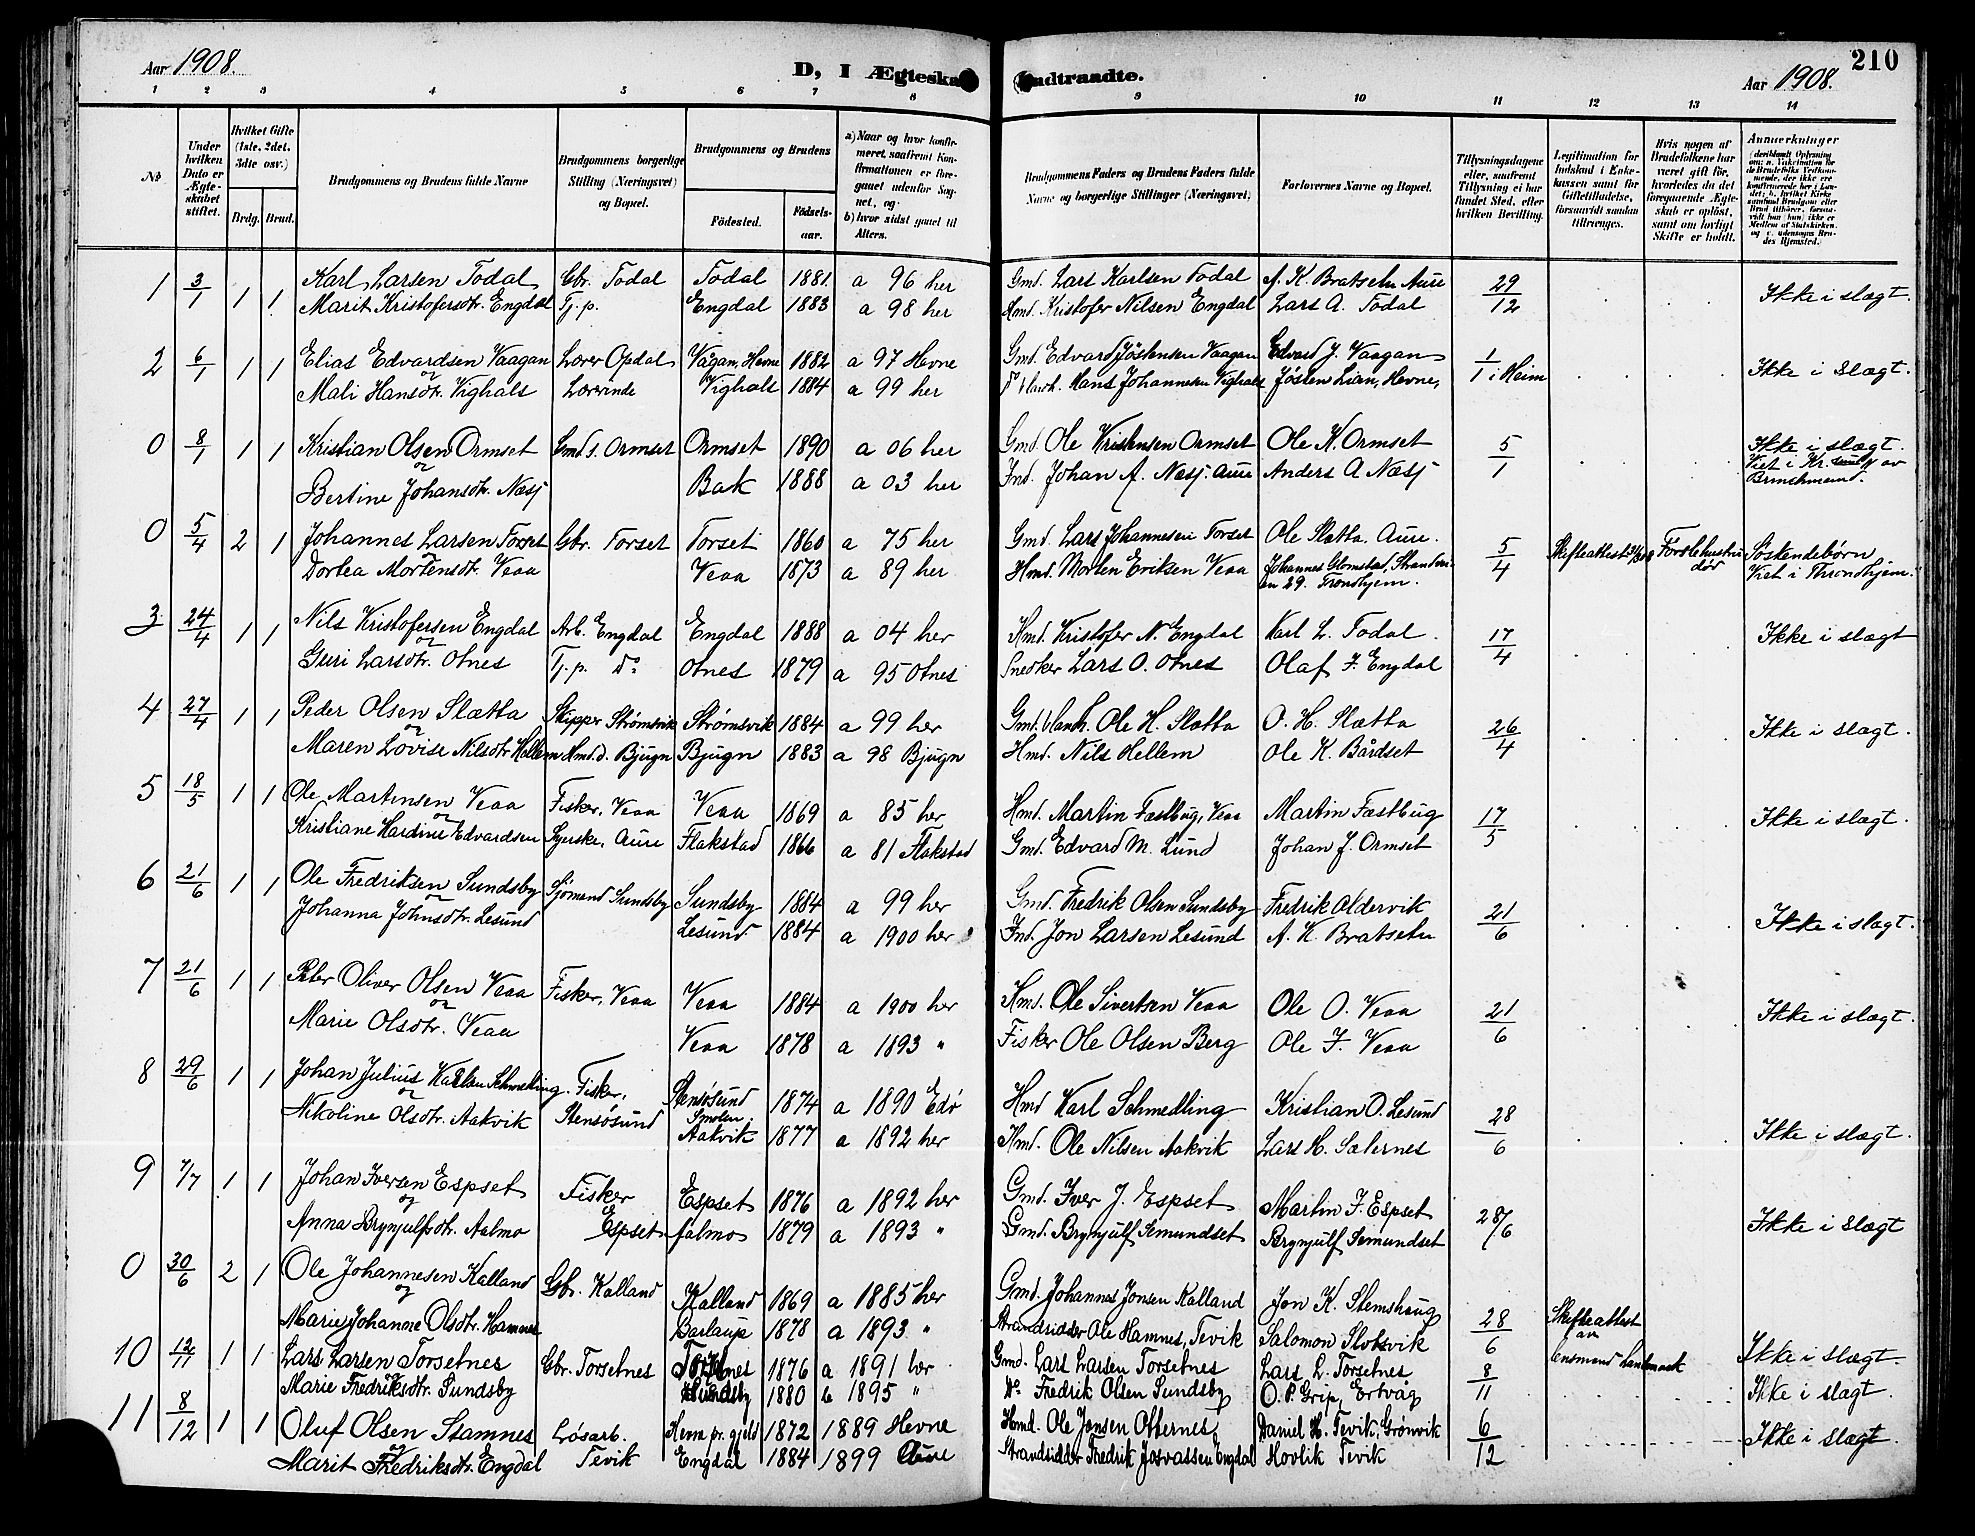 210
Aar 1908.
D, I Ægteska
Indtraadte.
Aar 1908.
1 2 3 4 5 6 7 8 9 10 11 12 13 14
No
Under hvilken Dato er Ægteskabet stiftet.
Hvilket Gifte (1ste, 2det, 3dte osv.)
Brdg. Brud.
Brudgommens og Brudens fulde Navne
Brudgommens borgerlige Stilling (Næringsvei) og Bopæl.
Brudgommens og Brudens
Fødested.
Fødselsaar.
a) Naar og hvor konfirmeret, saafremt Konfirmationen er foregaaet udenfor Sognet, og
b) hvor sidst gaaet til Alters.
Brudgommens Faders og Brudens Faders fulde Navne og borgerlige Stillinger (Næringsvei)
Forlovernes Navne og Bopæl.
Tillysningsdagene eller, saafremt Tillysning ei har fundet Sted, efter hvilken Bevilling.
Legitimation for Indskud i Enkekassen samt for Giftetilladelse, forsaavidt saadan tiltrænges.
Hvis nogen af Brudefolkene har været gift før, hvorledes da det foregaaende Ægteskab er opløst, samt om lovligt Skifte er holdt.
Anmerkninger
1 3/1 1 1 Karl Larsen Todal Gbr. Todal Todal 1881 a 96 her Gmd. Lars Karlsen Todal A. K. Bratsetn Aure 29/12 Ikke i slægt.
Marit Kristofersdtr. Engdal Tj. p. Engdal 1883 a 98 her Hmd. Kristofer Nilsen Engdal Lars A. Todal
2 6/1 1 1 Elias Edvardsen Vaagan Lærer Opdal Vågan, Hevne 1882 a 97 Hevne Gmd. Edvard Jøstensen Vaagan Edvard J. Vaagan 1/1 i Heim Ikke i slægt.
og
Mali Hansdtr. Vighals Lærerinde Vighals 1884 a 99 her Hans Johannesen Vighals Jøsten Lian, Hevne,
0 8/1 1 1 Kristian Olsen Ormset Gmd s. Ormset Ormset 1890 a 06 her Gmd. Ole Kristensen Ormset Ole K. Ormset 5/1 Ikke i slægt.
og
Bertine Johansdtr. Næsj Bak 1888 a 03 her Ind. Johan A. Næsj. Aure Anders A Næsj Viet i Kr.sund N av Brinchmand.
0 5/4 2 1 Johannes Larsen Torset Gbr. Torset Torset 1860 a 75 her Gmd. Lars Johannesen Torset Ole Slætta. Aure. 5/4 Skifteattest Første hustru død Søskendebørn
Dortea Mortensdtr. Veaa Veaa 1873 a 89 her Hmd. Morten Eriksen Veaa Johannes Glomstad, Stranden 29. Trondhjem. Viet i Throndhjem.
3 24/4 1 1 Nils Kristofersen Engdal Arb. Engdal Engdal 1888 a 04 her Hmd. Kristofer N. Engdal Karl L. Todal. 17/4 Ikke i slægt
Guri Larsdtr. Otnes Tj. p. Do Otnes 1879 a 95 Otnes Snedker Lars O. Otnes Olaf F. Engdal
4 27/4 1 1 Peder Olsen Slætta Skipper Strømsvik Strømsvik 1884 a 99 her Gmd. Ole H. Slætta O. H. Slætta 26/4 Ikke i slægt.
og
Maren Lovise Nilsdtr. Hellem Hmd. d. Bjugn Bjugn 1883 a 98 Bjugn Hmd. Nils Hellem Ole K. Bårdset
5 18/5 1 1 Ole Martinsen Veaa Fisker, Veaa Veaa 1869 a 85 her Hmd. Martin Fæstbug, Veaa Martin Fæstbug 17/5 Ikke i slægt.
og
Kristiane Hardine Edvardsen Syerske, Aure Flakstad 1866 a 81 Flakstad Gmd. Edvard M. Lund Johan J. Ormset
6 21/6 1 1 Ole Fredriksen Sundsby Sjømand Sundsby Sundsby 1884 a 99 her Gmd. Fredrik Olsen Sundsby Fredrik Oldervik 21/6 Ikke i slægt.
og
Johanna Johnsdtr. Lesund Lesund 1884 a 1900 her Ind. Jon Larsen Lesund A. K. Bratsetn
7 21/6 1 1 Peter Oliver Olsen Veaa Fisker, Veaa Veaa 1884 a 1900 her Hmd. Ole Sivertsen Veaa Ole O. Veaa 21/6 Ikke i slægt.
og
Marie Olsdtr. Veaa Veaa 1878 a 1893 " Fisker Ole Olsen Berg Ole F. Veaa
8 29/6 1 1 Johan Julius Karlsen Schmedling. Fisker, Stensøsund Stensøsund Smølen. 1874 a 1890 Edø Hmd Karl Schmedling Kristian O. Lesund 28/6 Ikke i slægt.
og
Nikoline Olsdtr. Aakvik Aakvik 1877 a 1892 her Hmd. Ole Nilsen Aakvik Lars H. Sæternes
9 7/7 1 1 Johan Iversen Espset Fisker Espset Espset 1876 a 1892 her Gmd. Iver J. Espset Martin F. Espset 28/6 Ikke i slægt
og
Anna Brynjulfsdtr. Aalmo Aalmo 1879 a 1893 " Gmd. Brynjulf Semundset Brynjulf Semundset
0 30/6 2 1 Ole Johannesen Kalland Gbr. Kalland Kalland 1869 a 1885 her Gmd. Johannes Jonsen Kalland Jon K. Stemshaug 28/6 Skifteattest av Lensmand
og
Marie Johanne Olsdtr. Hamnes 1878 a 1893 " Strandsidder Ole Hamnes, Tevik Salomon Slotsvik
10 12/11 1 1 Lars Larsen Torsetnes Gbr. Torsetnes Torsetnes 1876 a 1891 her Gmd. Lars Larsen Torsetnes Lars L. Torsetnes 8/11 Ikke i slægt.
Marie Fredriksdtr. Sundsby Sundsby 1880 b 1895 " Do Fredrik Olsen Sundsby O. P. Grip, Ertvåg Ikke i slægt.
11 8/12 1 1 Oluf Olsen Stamnes Løsarb. Tevik Hevne pr. gjeld 1872 1889 Hevne Hmd. Ole Jonsen Otternes Daniel H. Tevik, Grønvik 6/12 Ikke i slægt.
og
Marit Fredriksdtr. Engdal Engdal 1884 1899 Aure Strandsidder Fredrik Josvassen Engdal Hovlik Tevik